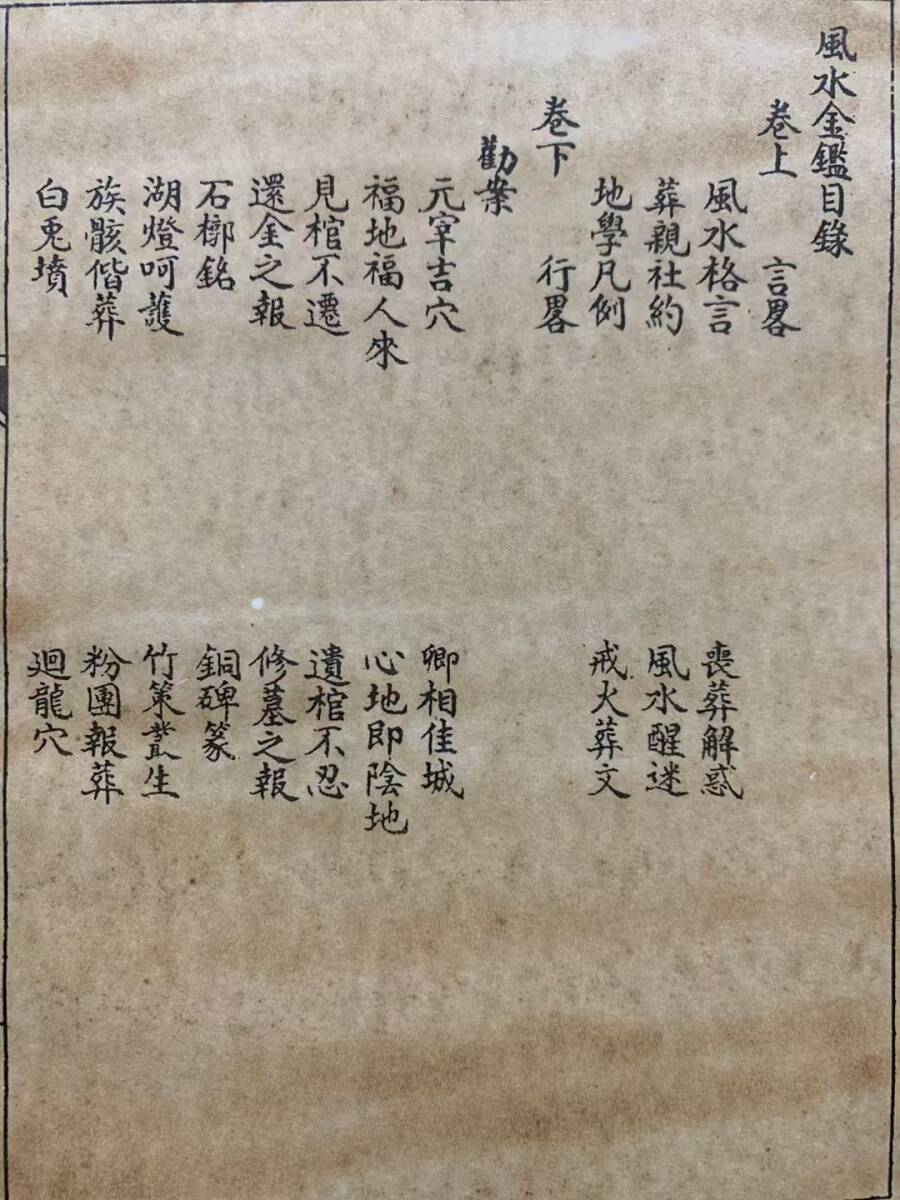 風水金鑑目錄
卷上 言畧
風水格言 喪葬解惑
葬親社約 風水醒迷
地學凡例 戒火葬文
卷下 行畧
勸案
元宰吉穴 卿相佳城
福地福人來 心地即陰地
見棺不遷 遺棺不忍
還金之報 修墓之報
石槨銘 銅碑篆
湖燈呵護 竹策叢生
族骸偕葬 粉團報葬
白兎墳 廻龍穴